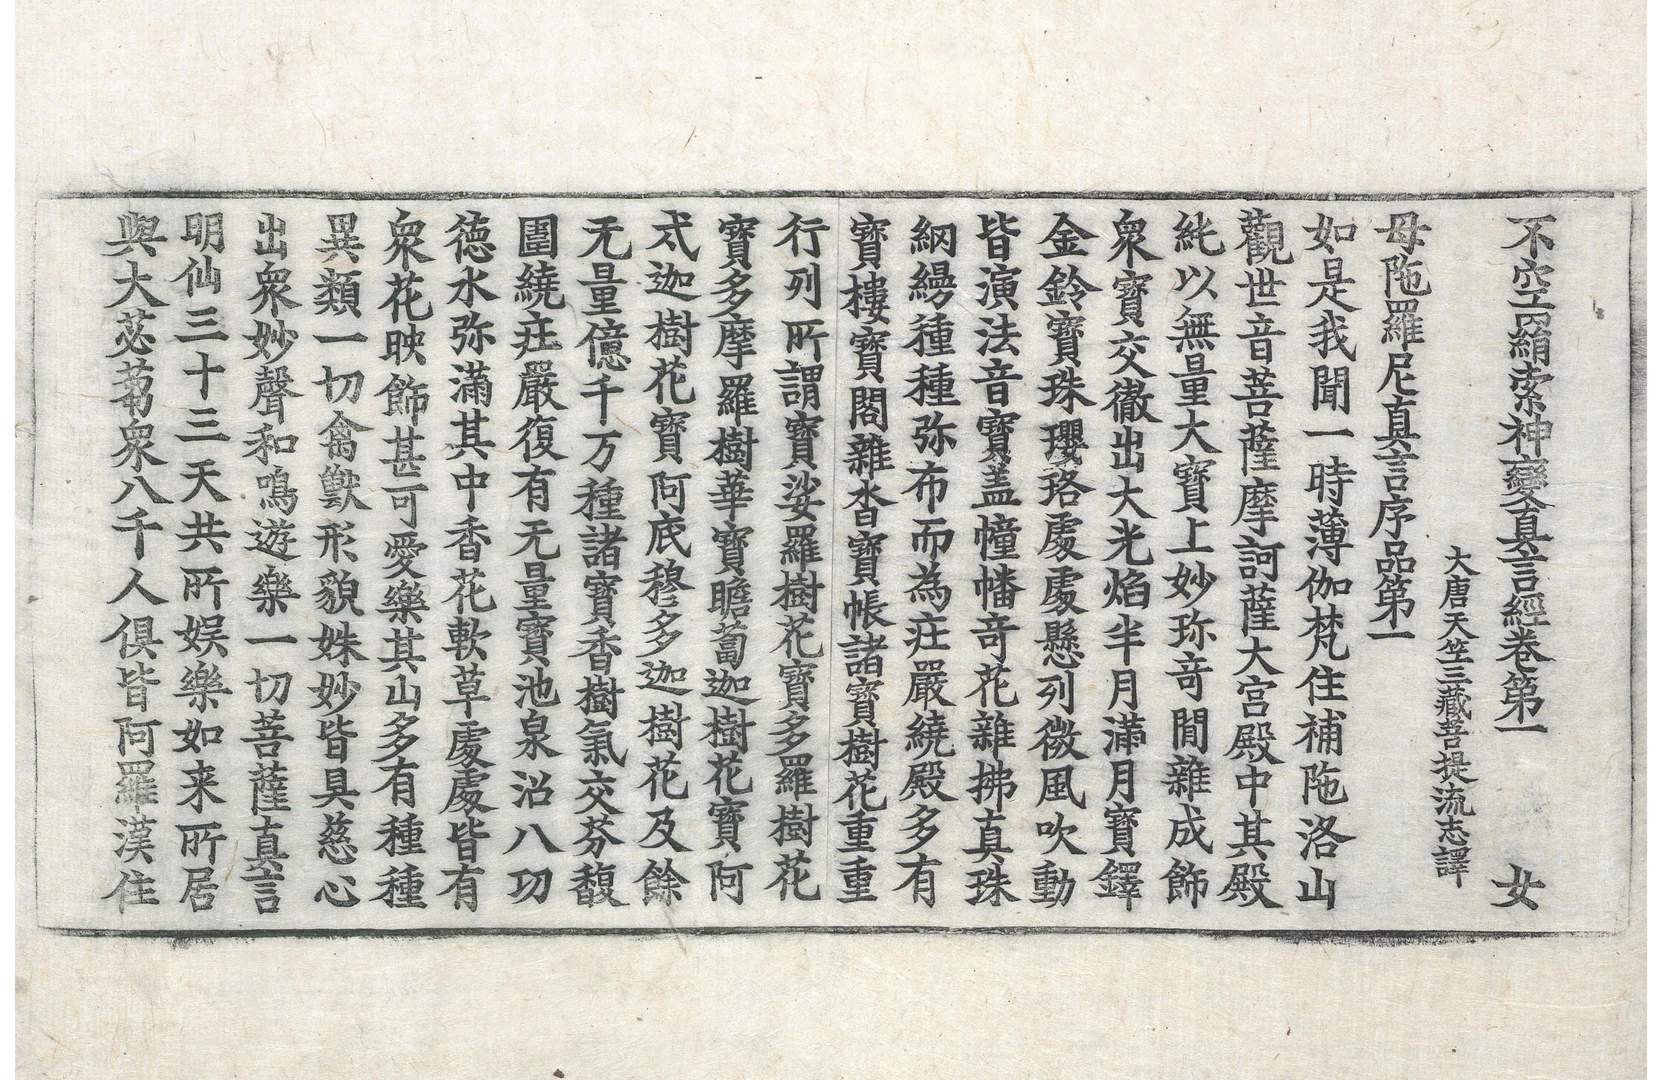 不空羂索神變真言經卷第一 女
大唐天竺三藏菩提流志譯
母陁羅尼真言序品第一
如是我聞一時薄伽梵住補陁洛山
觀世音菩薩摩訶薩大宮殿中其殿
純以無量大寶上妙珎竒間雜成飾
衆寶交徹出大光焰半月滿月寶鐸
金鈴寶珠瓔珞處處懸列微風吹動
皆演法音寶盖幢幡竒花雜拂真珠
網縵種種弥布而為莊嚴繞殿多有
寶樓寶閣雜沓寶帳諸寶樹花重重
行列所謂寶娑羅樹花寶多羅樹花
寶多摩羅樹華寶瞻蔔迦樹花寶阿
忒迦樹花寶阿底穆多迦樹花及餘
无量億千万種諸寶香樹氣交芬馥
圍繞莊嚴復有无量寶池泉沼八功
德水弥滿其中香花軟草處處皆有
衆花映飾甚可愛樂其山多有種種
異類一切禽獸形貌姝妙皆具慈心
出衆妙聲和鳴遊樂一切菩薩真言
明仙三十三天共所娛樂如来所居
與大苾蒭衆八千人俱皆阿羅漢住